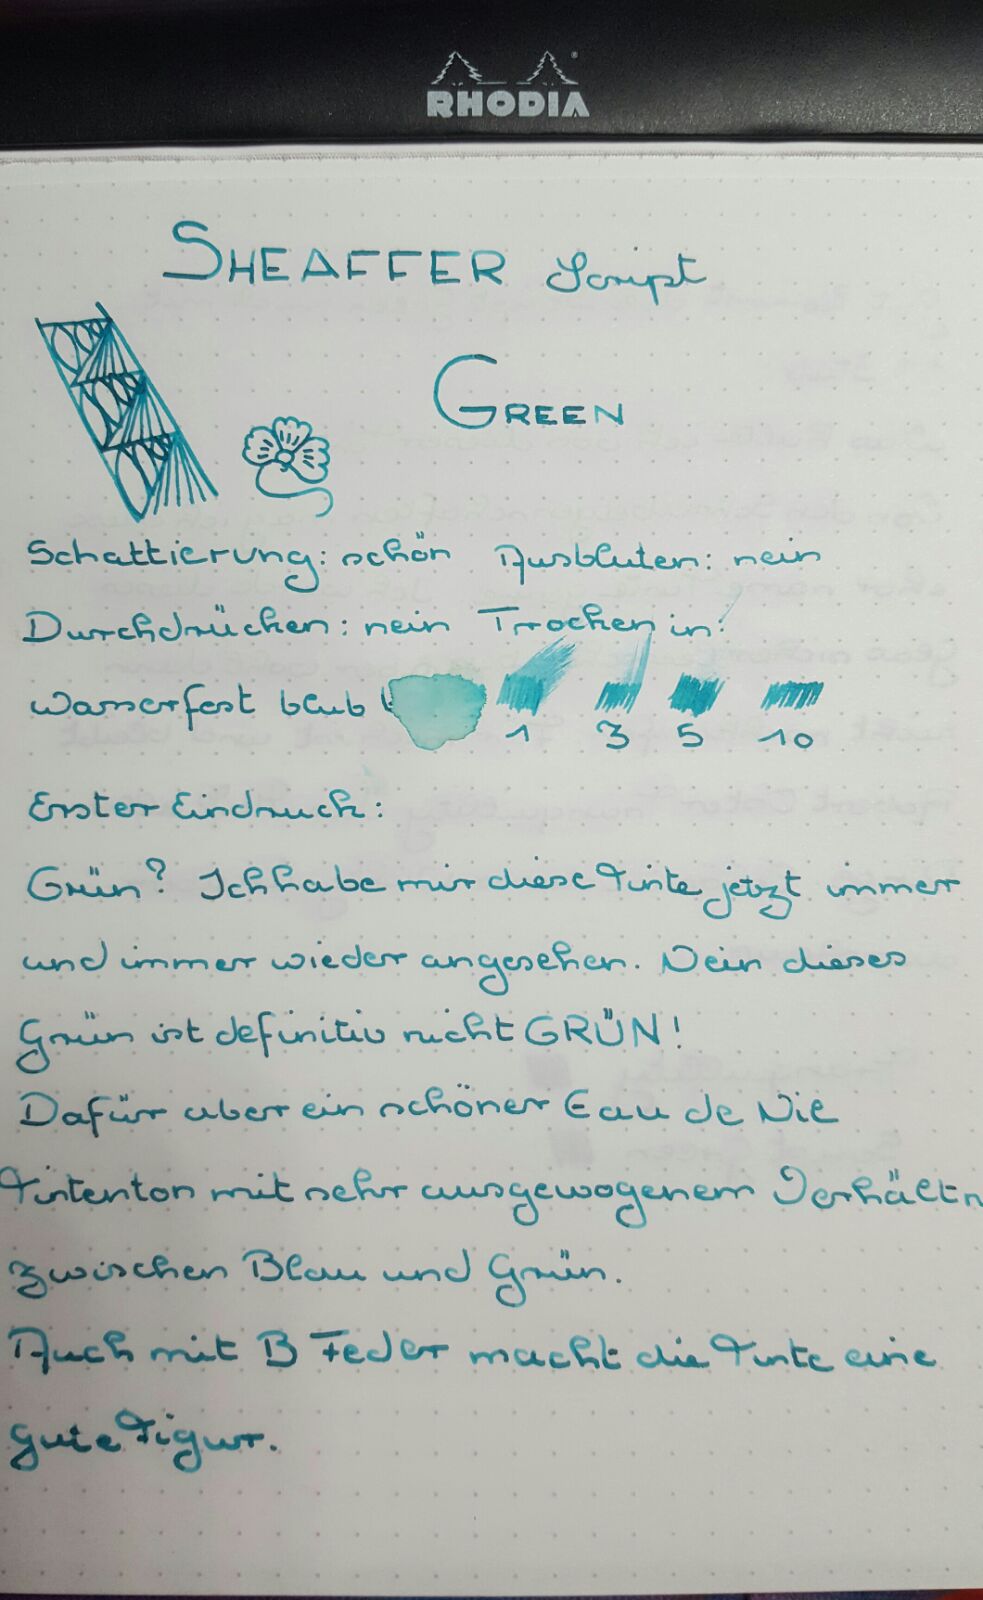 RHODIA
SHEAFFER Script
GREEN
Schattierung: schön Ausbluten: nein
Durchdrücken: nein Trocken in:
Wasserfest
1 3 5 10
Erster Eindruck:
Grün? Ich habe mir diese Tinte jetzt immer
und immer wieder angesehen. Nein dieses
Grün ist definitiv nicht GRÜN!
Dafür aber ein schöner Eau de Nil
Tintenton mit sehr ausgewogenem Verhältn
zwischen Blau und Grün.
Auch mit B Feder macht die Tinte eine
gute Figur.